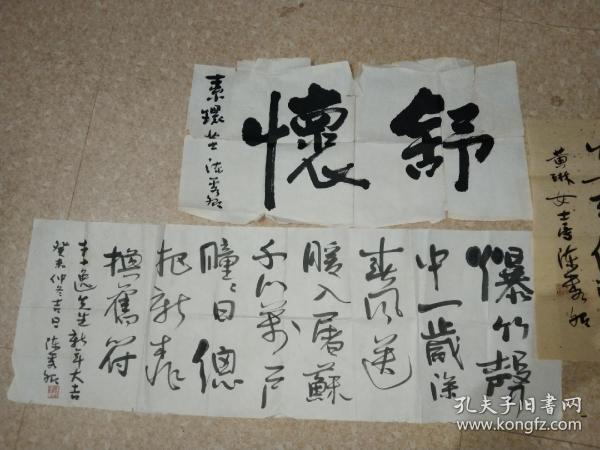 舒懷
素環女士 陳秀卿
爆竹聲
中一歲除
春風送
暖入屠蘇
千門萬戶
瞳瞳日總
把新春
換舊符
李逸先生新年大吉
癸未仲冬吉日 陳秀卿
黃琳女士
孔夫子旧书网
www.kongfz.com